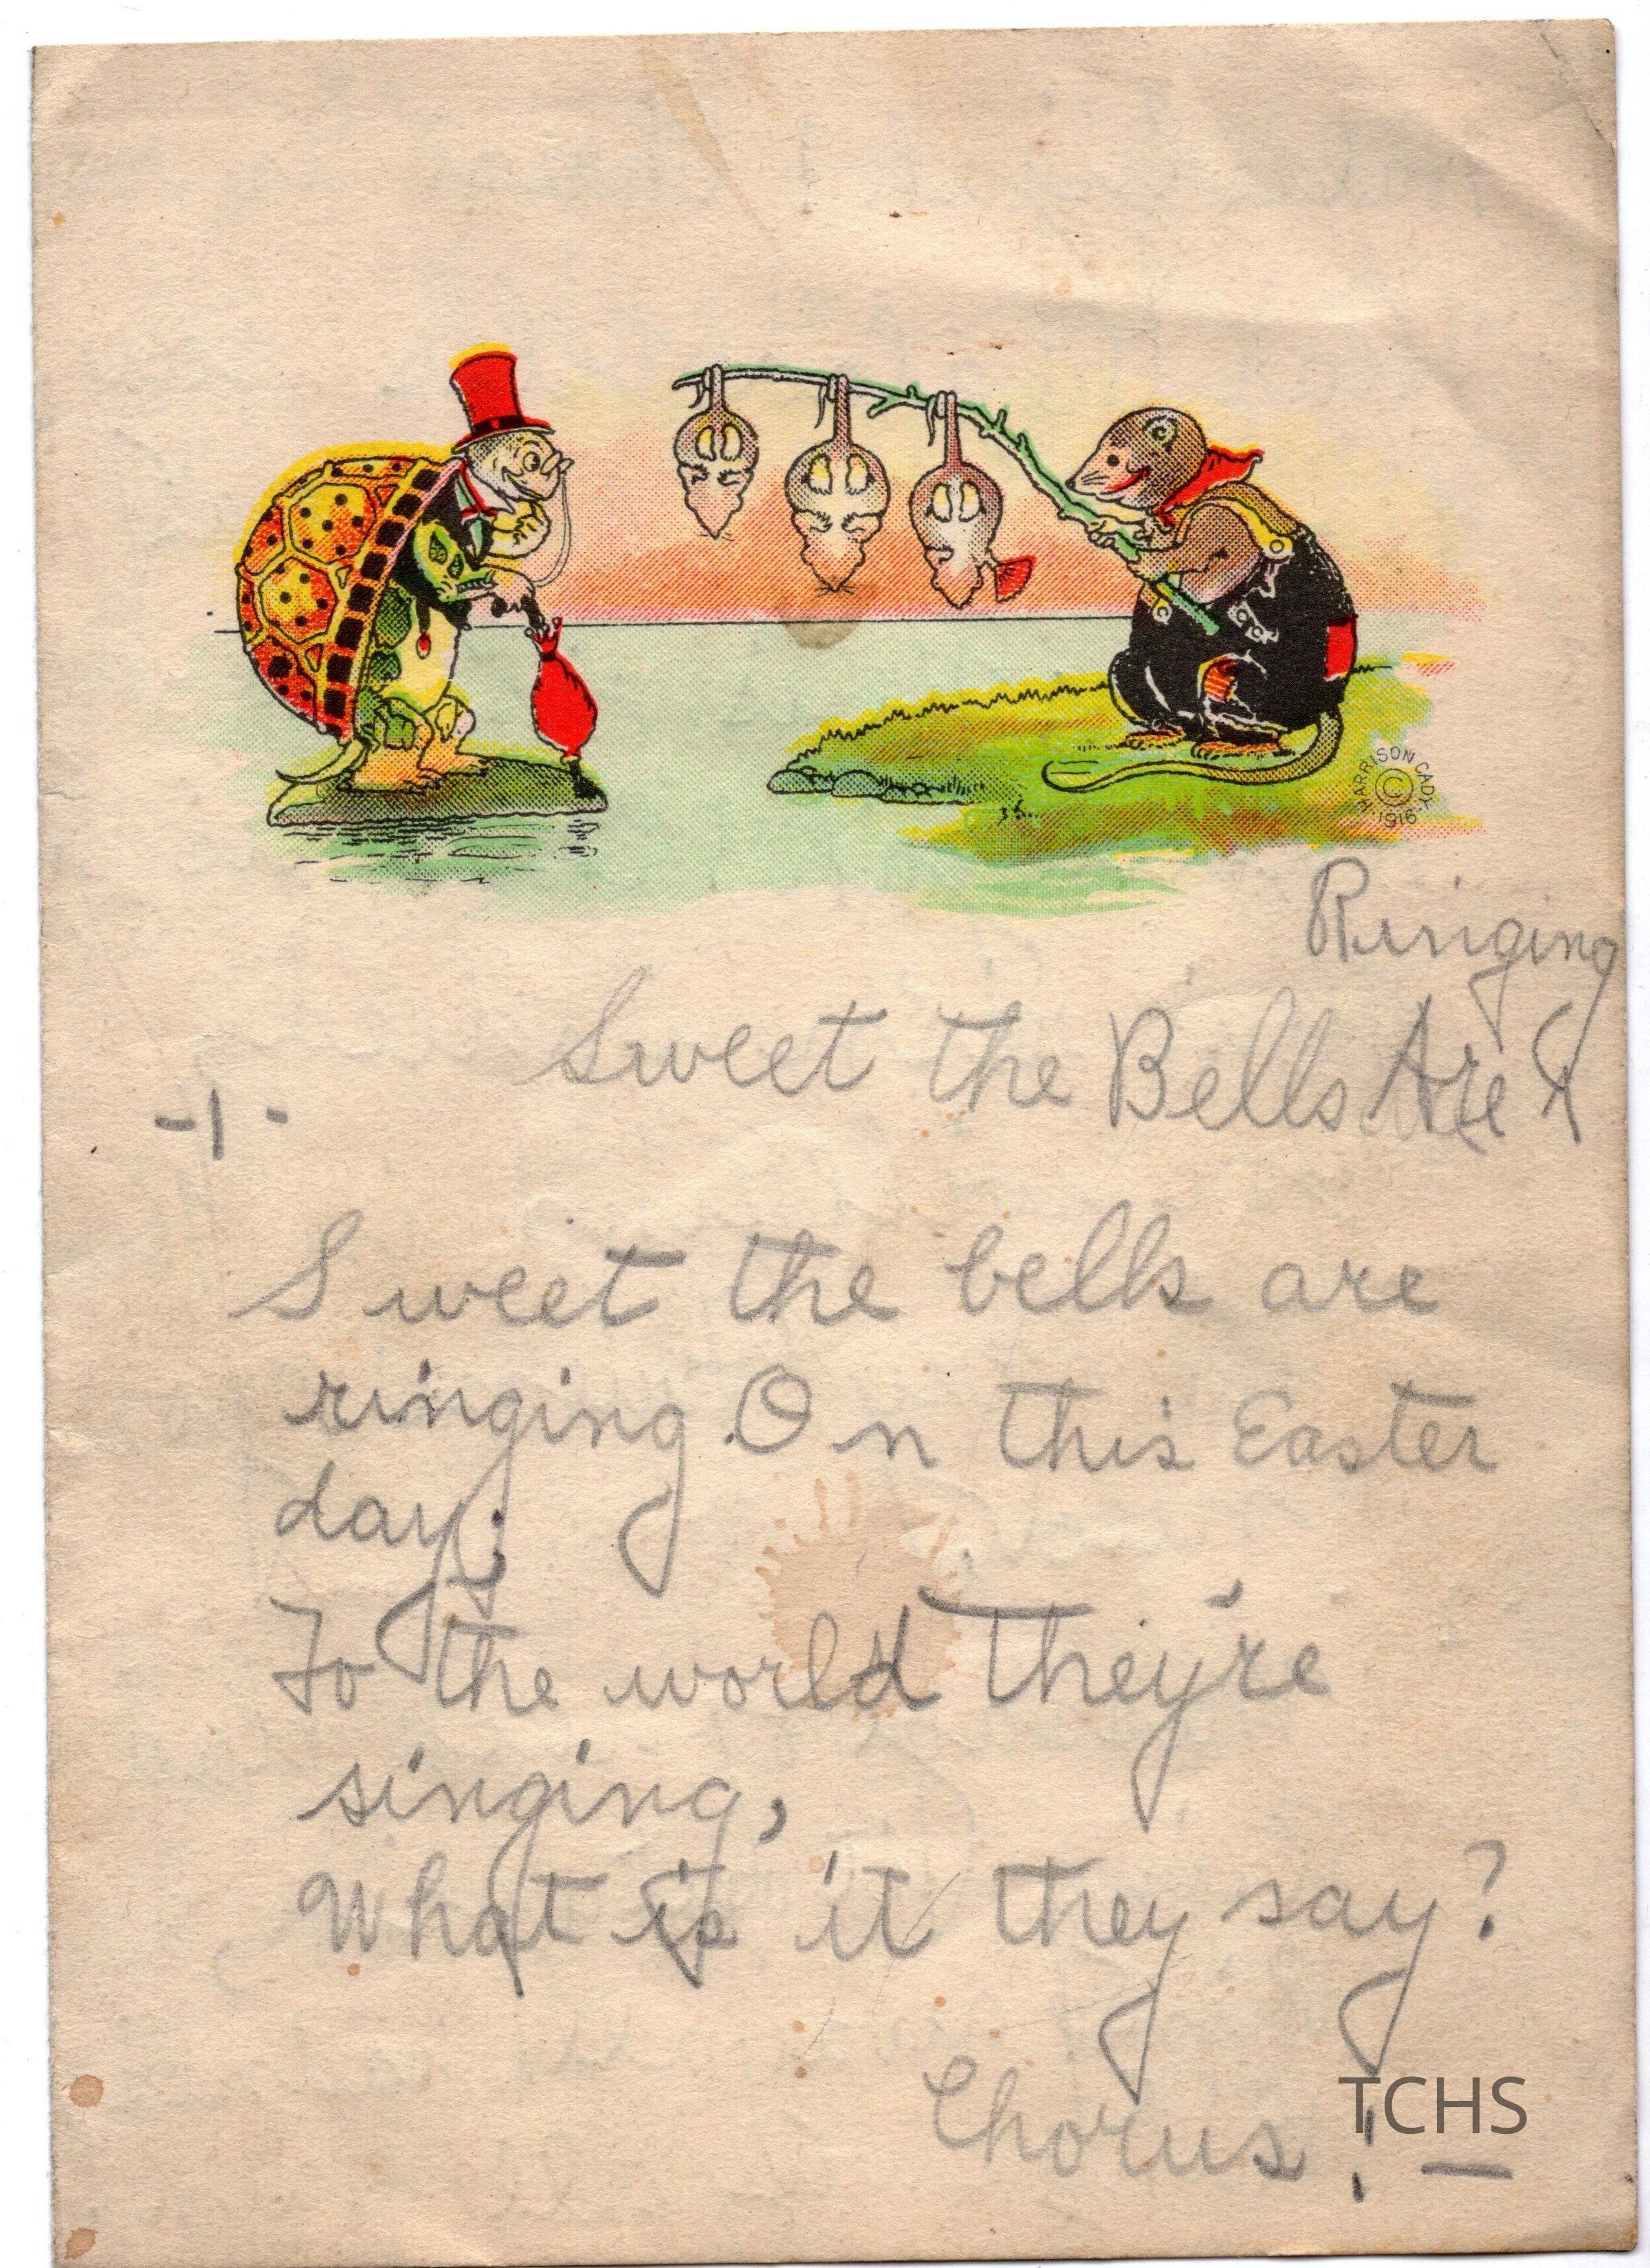 HARRISON CADY
© 1916
Ringing
Sweet the Bells Are
-1-
Sweet the bells are
ringing. On this Easter
day;
To the world they're
singing,
What is it they say?
Chorus! —
TCHS